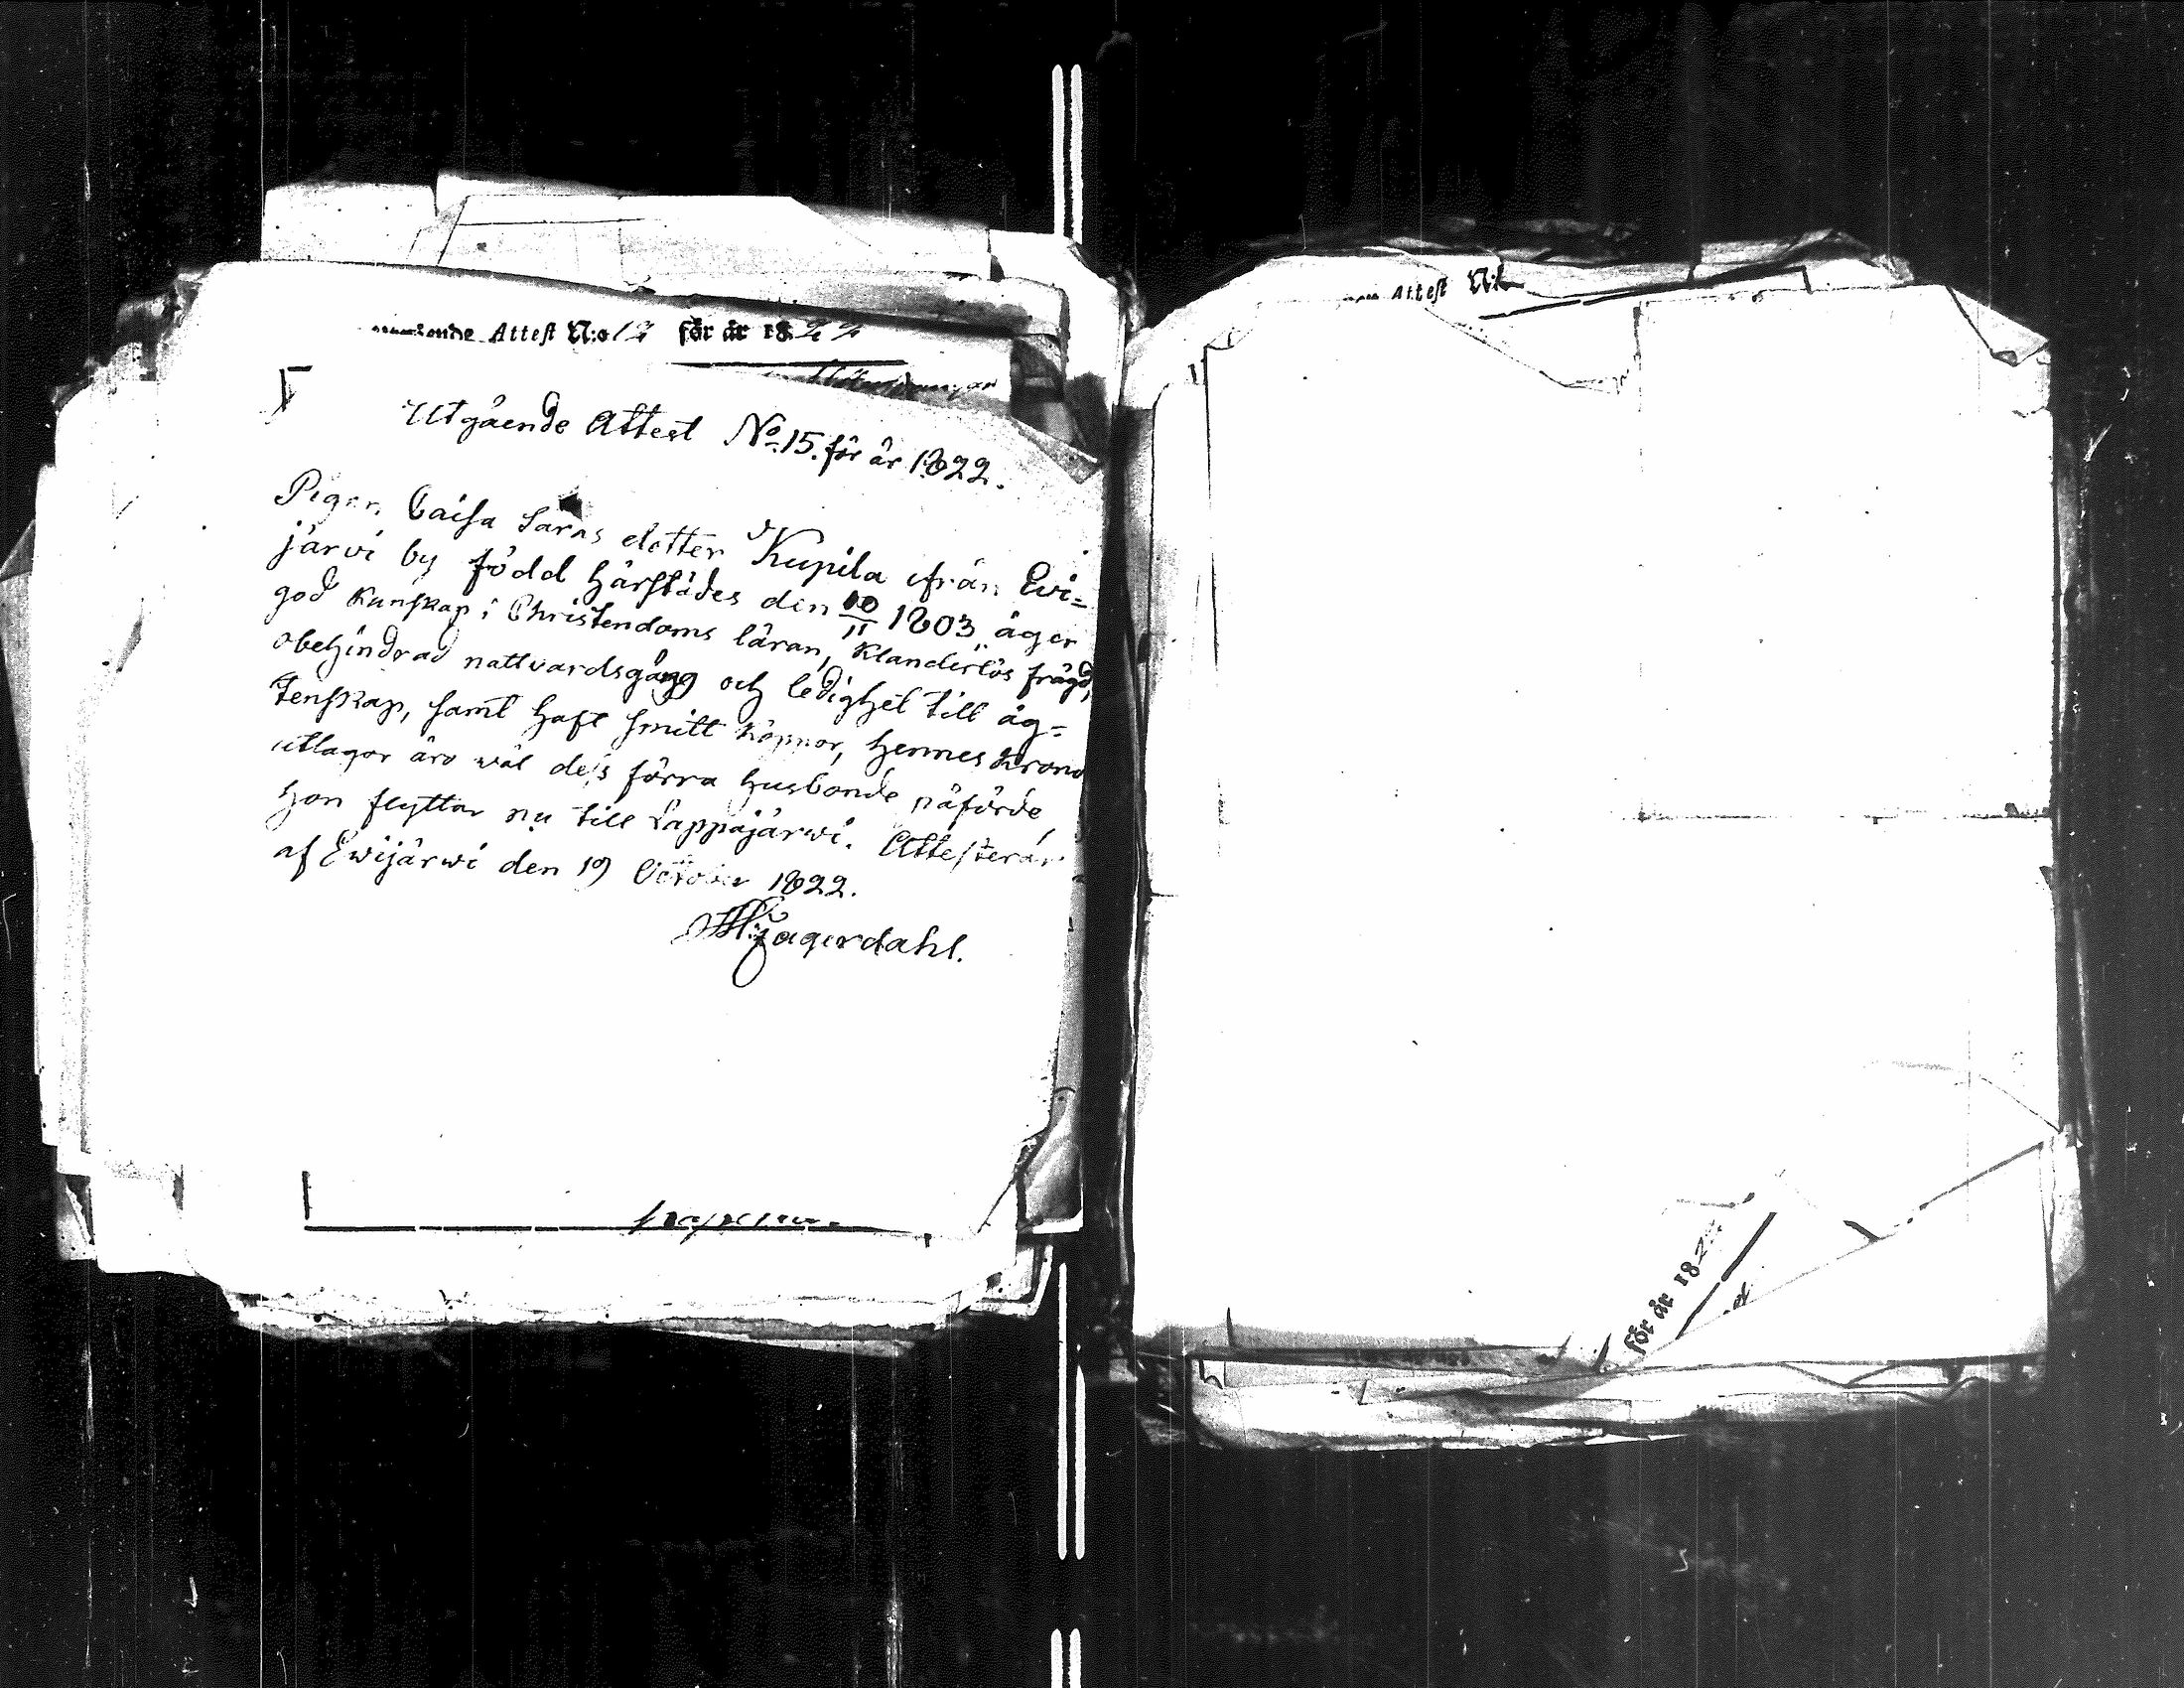 Attest N:o 12 för år 1822
Utgående Attest No 15. för år 1822.
Pigan Caisa Saras dotter Kupila ifrån Ewi=
järvi by född härstädes den 10/11 1803, äger
god kunskap i Christendoms läran, klanderlös frägd,
obehindrad nattvardsgång och ledighet till äg=
tenskap, samt haft smitt koppor, hennes krono
utlagor äro wäl dess förra husbonde påförde,
hon flyttar nu till Lappajärwi. Attesterar
af Ewijärwi den 19 October 1822.
Fagerdahl.
Attest N:
för år 182